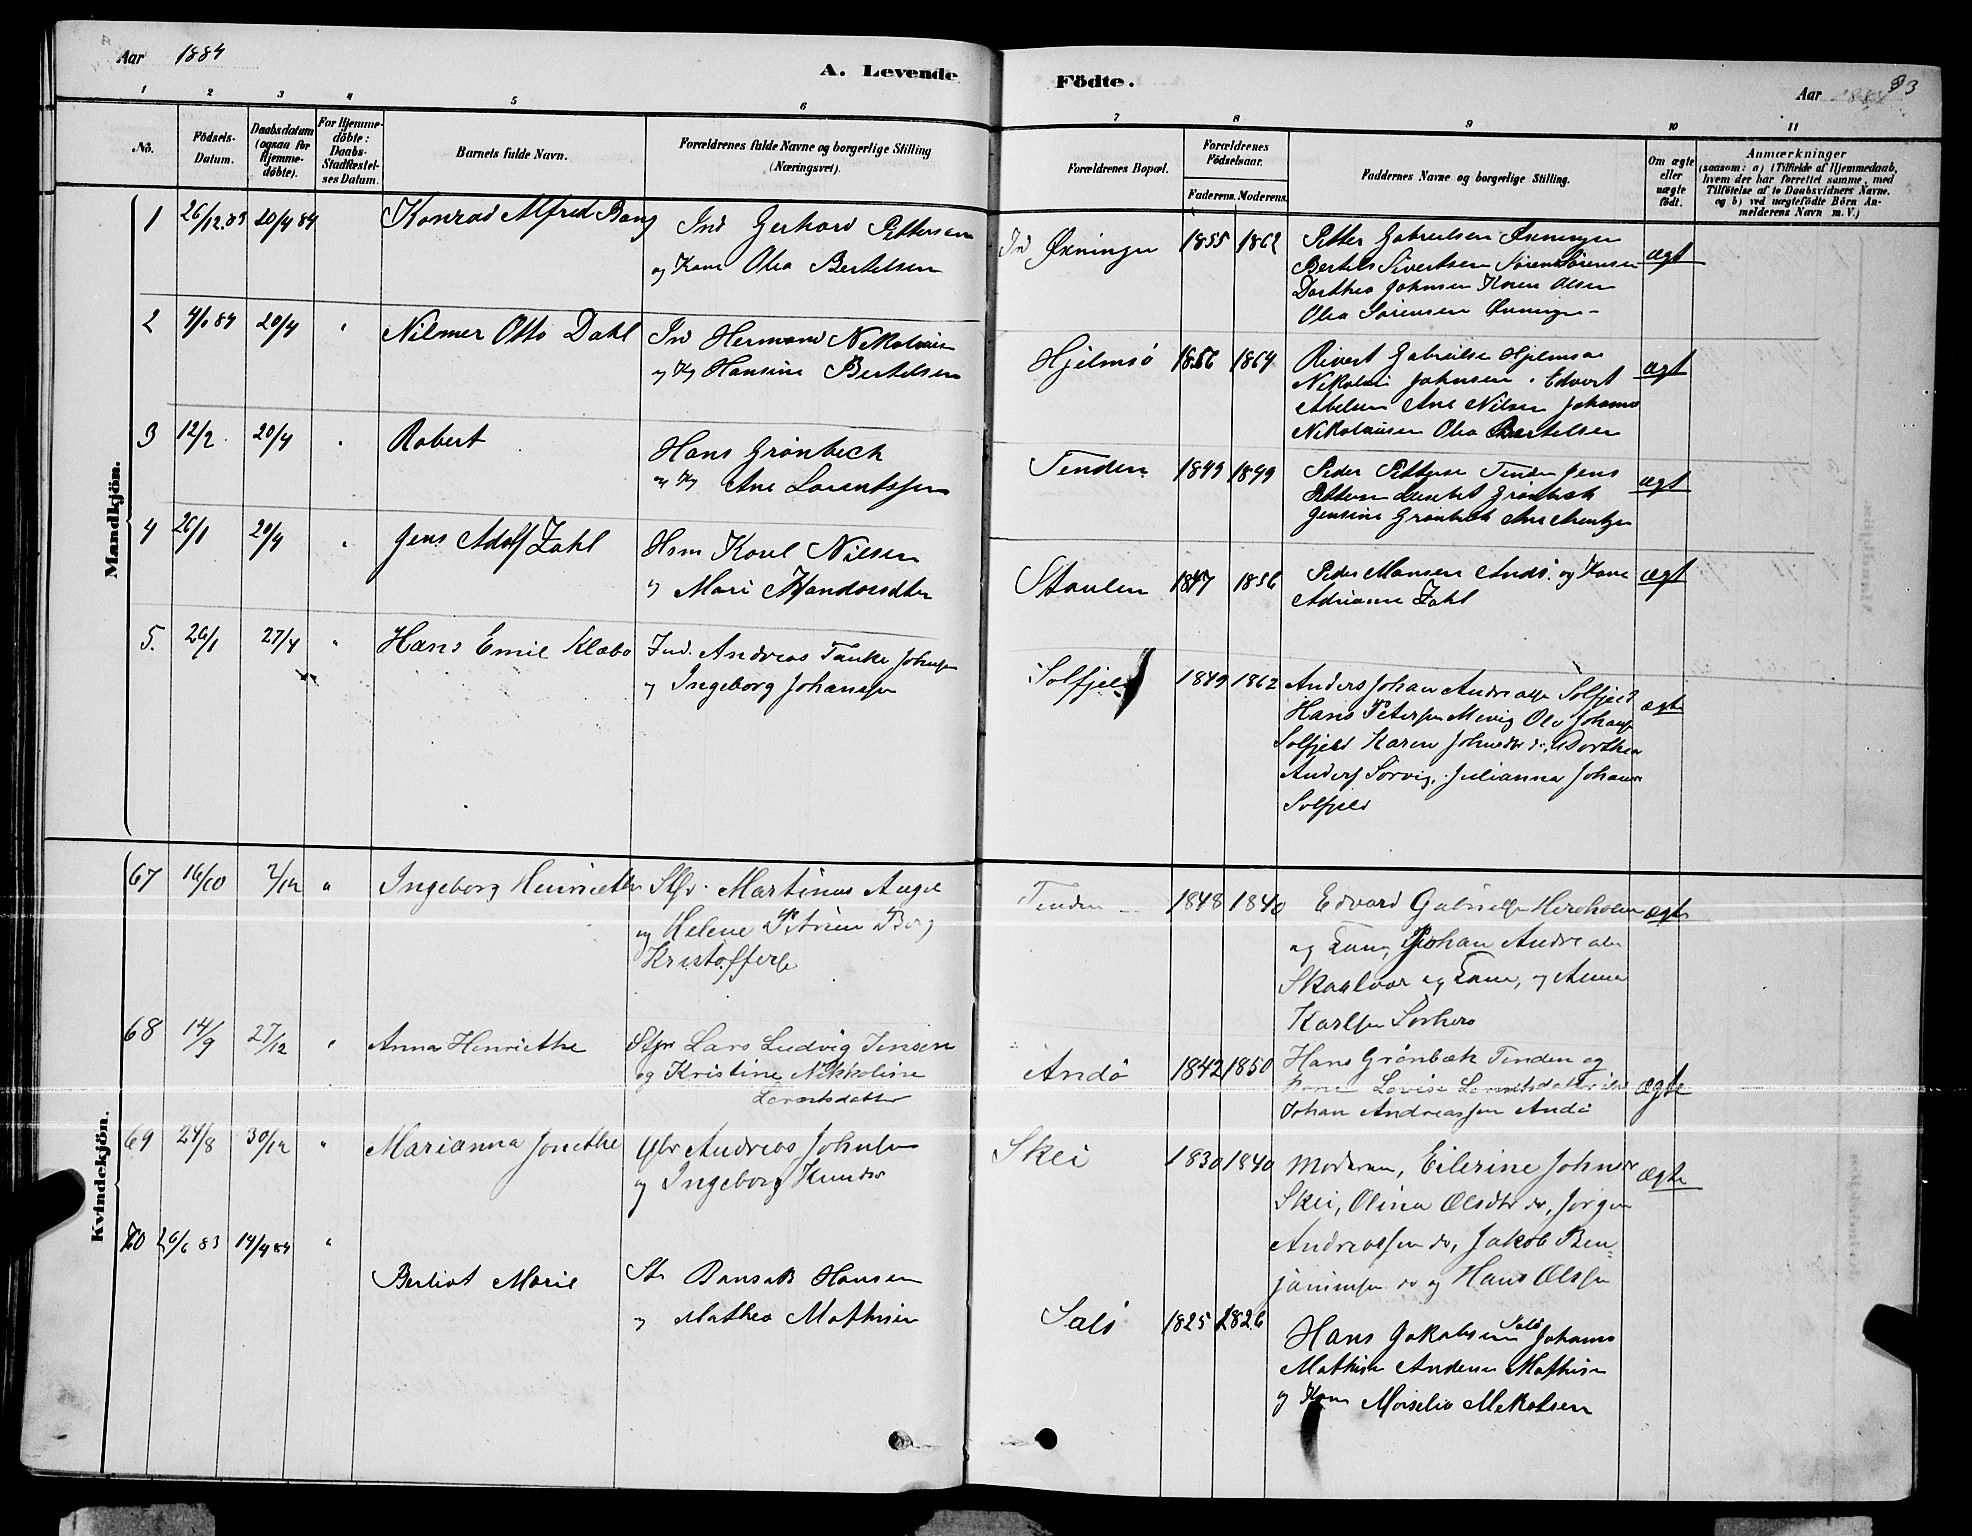 Aar 1884
A. Levende
Födte.
Aar 1884
93
1 2 3 4 5 6
7 8 9 10 11
No.
Födsels-Datum.
Daabsdatum (ogsaa for Hjemme-döbte).
For Hjemme-döbte: Daabs-Stadfæstel-ses Datum.
Barnets fulde Navn.
Forældrenes fulde Navne og borgerlige Stilling (Næringsvei).
Forældrenes Bopæl.
Forældrenes Födselsaar.
Faderens. Moderens.
Faddernes Navne og borgerlige Stilling.
Om ægte eller uægte födt.
Anmærkninger
(saasom: a) i Tilfælde af Hjemmedaab, hvem der har forrettet samme, med Tilföielse af to Daabsvidners Navne, og b) ved uægtefödte Börn An-melderens Navn m. V.)
Mandkjön.
1 26/12.83 20/4 84 Konrad Alfred Bang
Ind Gerhard Pettersen
og Kone Olea Bertelsen
Øxningen 1855 1862
Petter Gabrielsen Øxningen
Bertel Sivertsen Søren Sørensen
Dorthea Johnsen Karen Olsen
Olea Sørensen Øxningen
ægt
2 4/1 84 20/4 " Nilmer Otto Dahl
Ind Hermand Nikolaisen
og Kg Hansine Bertelsen
Hjelmsö 1856 1864
Rivert Gabrielse Hjelmsø
Nikolai Johnsen. Edvart
Abelsen Ane Nilsen Johanna
Nikolaisen Olea Bertelsen
ægt
3 12/2. 20/4 " Robert
Hans Grönbeck
og Kg Ane Lorentssen
Tenden 1849 1849
Peder Petterse Tenden Jens
Pettersen Grønbæk
Jensine Grønbeck Ane Arentzen
ægt
4 26/1 20/4 " Jens Adolf Zahl
Hsm Karl Nilsen
og Mari
Staulen 1847 1856
Peder Hansen Andö. og Kone
Adrianne Zahl
ægt
5. 26/1 27/4 " Hans Emil Klæbo
Ind. Andreas Tanke Johnsen
og Ingeborg Johansen
Solfjeld 1849 1862
Anders Johan Andreasse Solfjeld
Hans Petersen Mevig Ole Johans
Solfjeld Karen Johnsdtr do, Dorthea
Anders Sørvig, Julianna Johans
Solfjeld
ægte
Kvindekjön.
67 16/10 7/12 " Ingeborg Henriethe
Stfr. Martinus Angel
og Helene Petrine Berg
Kristofferse
Tenden 1848 1840
Edvard Gabrielse Herøholmen
og Kone, Johan Andreas
Skaalvær og Kone, og Anna
Karlsen Sørherø
ægte
68 14/9 27/12 " Anna Henriethe
Styr Lars Ludvig Jensen
og Kristine Nikkoline
Lorentsdatter
Andö 1842 1850
Hans Grönbæk Tenden og
Kone Lovise Lorentsdatter ibd
Johan Andreassen Andö
ægte
69 24/8 30/12 " Marianna Jonethe
Gbr Andreas Johnsen
og Ingeborg Knudsd
Skei 1830 1840
Moderen, Eilerine Johns
Skei, Olina Olsdtr do, Jørgen
Andreassen do, Jakob Ben-
jaminsen do og Hans Olsen
ægte
70 26/6 83 14/4 84 "
Berliot Marie
Str Bansak Hansen
og Mathea Mathisen
Salö 1825 1826
Hans Jakobsen Salö Johanna
Mathisen Andersen Mathisen
og Kone Moiselia Mekalsen